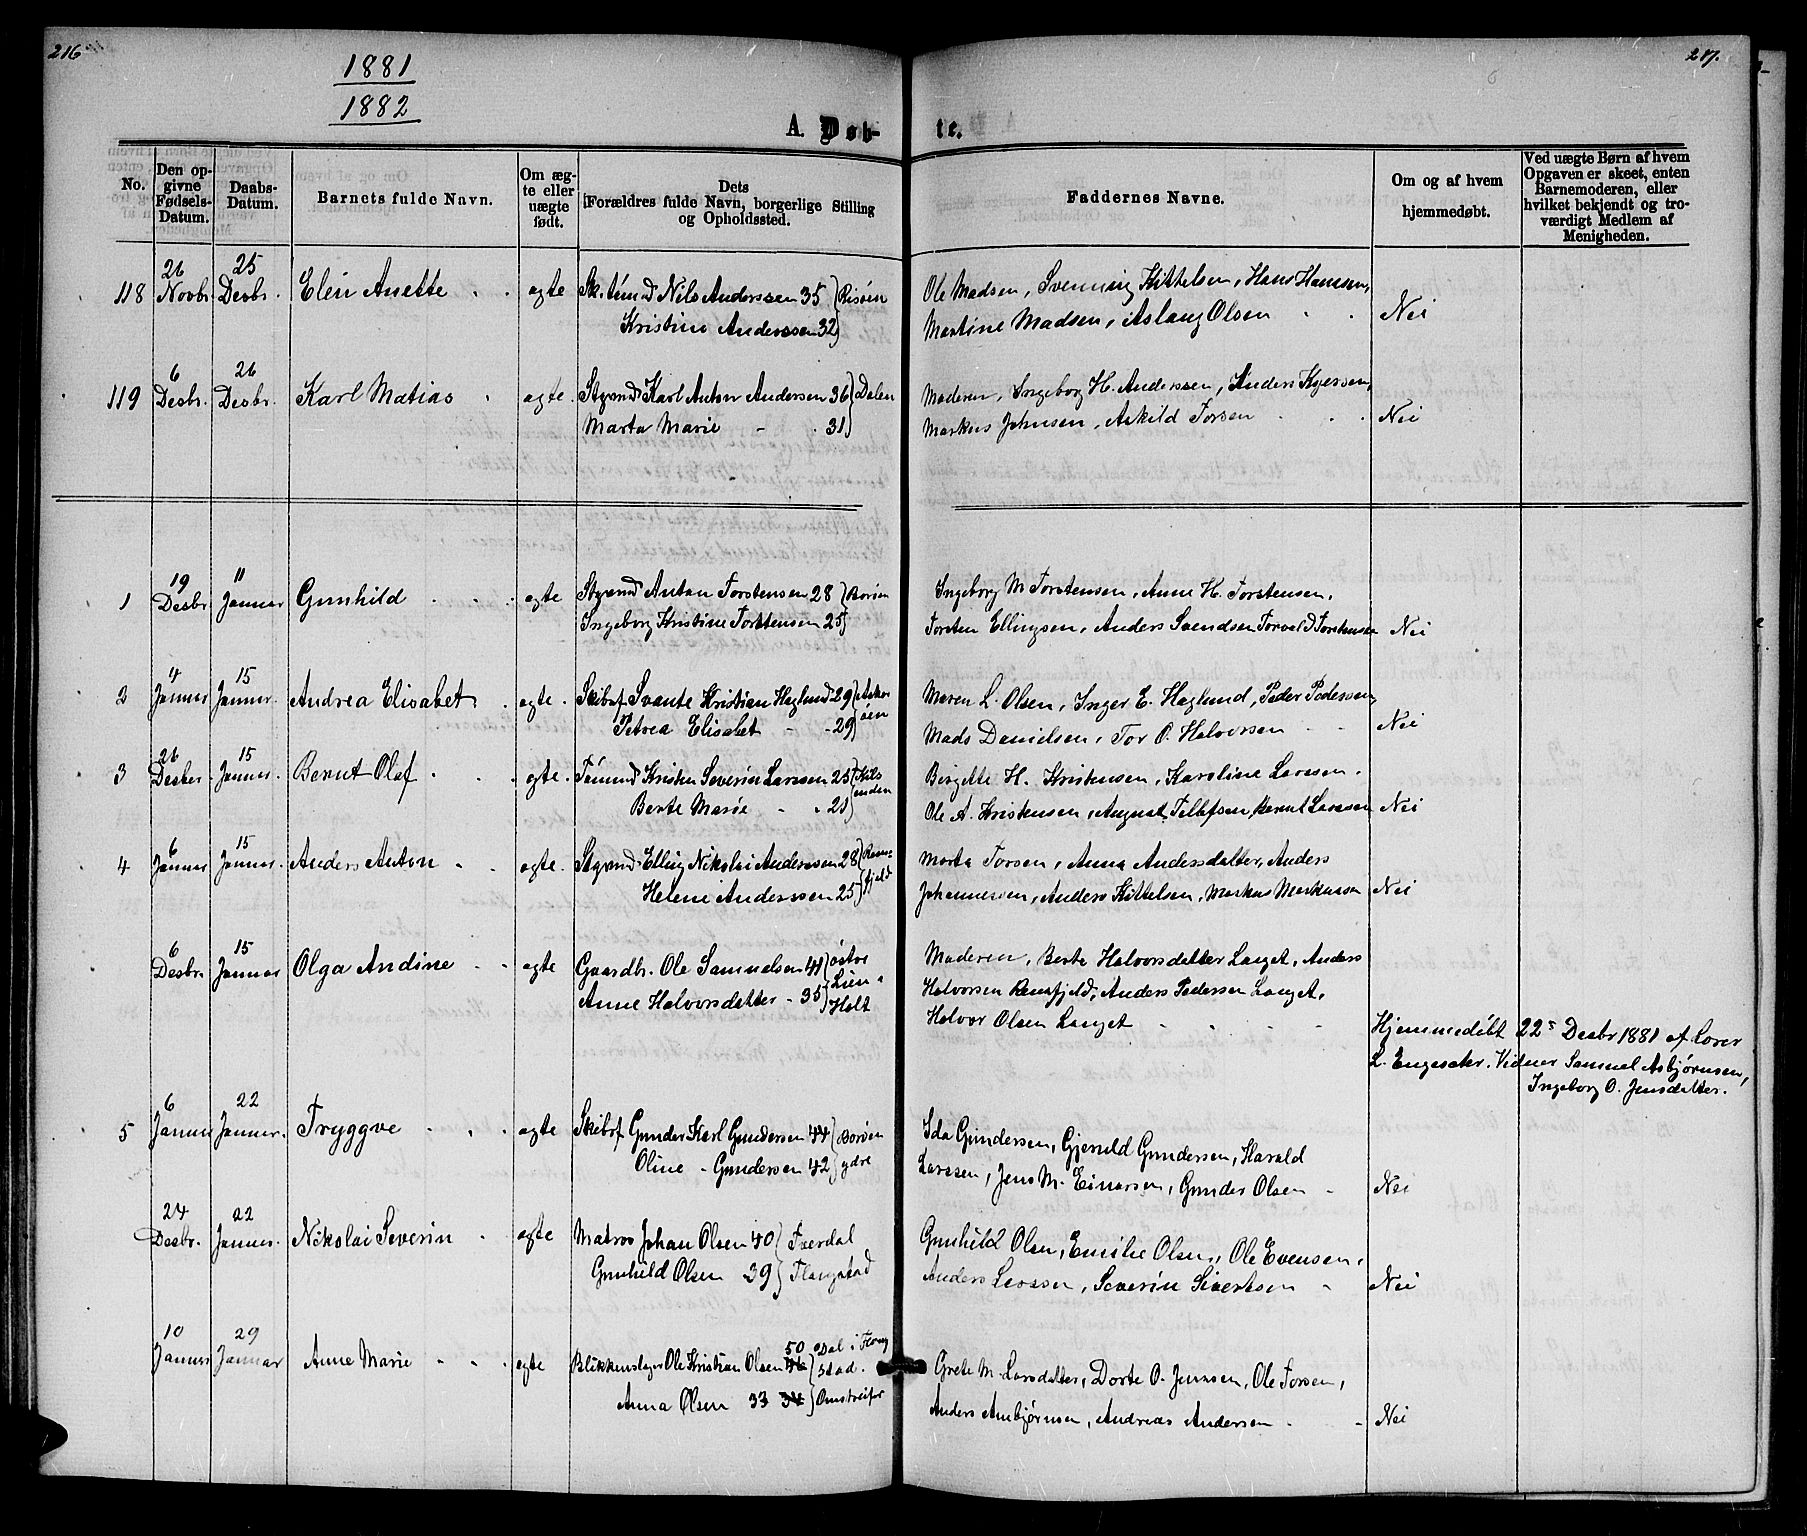 216
217.
1881
1882
A. Døb-
te.
No.
Den opgivne Fødsels-Datum.
Daabs-Datum.
Barnets fulde Navn.
Om ægte eller uægte født.
Dets (Forældres fulde Navn, borgerlige Stilling og Opholdssted.
Faddernes Navne.
Om og af hvem hjemmedøbt.
Ved uægte Børn af hvem Opgaven er skeet, enten Barnemoderen, eller hvilket bekjendt og troværdigt Medlem af Menigheden.
118 26 Novbr. 25 Desbr. Elen Anette ægte Sk.tømd Nils Anderssen 35 Risøen
Kristine Anderssen 32
Ole Madsen, Svenning Kittelsen, Hans Hanssen,
Martine Madsen, Aslaug Olsen Nei
119 6 Desbr. 26 Desbr. Karl Matias ægte. Styrmd Karl Anton Andersen 36 Dalen
Marta Marie - 31
Moderen, Ingeborg H. Anderssen, Anders Kjerssen,
Markus Johnsen, Askild Torsen Nei
1 19 Desbr 11 Januar Gunhild ægte Styrmd Anton Torstensen 28 Borøen
Ingeborg Kristine Torstensen 25
Ingeborg M Torstensen, Anne H. Torstensen,
Torsten Ellingsen, Anders Svendsen, Torvald Torstensen Nei
2 4 Januar 15 Januar. Andrea Elisabet ægte. Skibsf Svante Kristian Haglund 29 Askerøen
Petrea Elisabet - 29
Maren L. Olsen, Inger E. Haglund, Peder Pedersen,
Mads Danielsen, Tor O. Halvorsen Nei
3 26 Desbr 15 Januar. Bernt Olaf ægte. Tømmd Kristen Severin Larssen 25 Kilsunden
Berte Marie - 21
Birgitte H. Kristensen, Karoline Larssen.
Ole A. Kristensen, August Tellefsen, Bernt Larssen Nei
4 6 Januar 15 Januar. Anders Anton ægte. Styrmd Elling Nikolai Anderssen 28 Ramsfjeld
Helene Anderssen 25
Marta Torsen, Anna Andersdatter, Anders
Johannessen, Anders Kittelsen, Markus Markussen Nei
6 Desbr. 15 Januar Olga Andine ægte Gaardbr. Ole Samuelsen 41 østre
Anne Halvorsdatter - 35 Lien
Holt
Moderen, Berte Halvorsdatter Langet, Anders
Halvorsen Ramsfjeld, Anders Pedersen Langet,
Halvor Olsen Langet
Hjemmedøbt 22s Desbr 1881 af Lærer
L. Engesæter. Vidner Samuel Asbjørnsen,
Ingeborg O. Jensdatter.
5 6 Januar 22 Januar. Tryggve ægte Skibsf Gunder Karl Gundersen 44 Borøen
Oline - Gundersen 42 ydre
Ida Gundersen, Gjeruld Gundersen, Harald
Larssen, Jens M. Einarsen, Gunder Olsen Nei
24 Desbr. 22 Januar. Nikolai Severin ægte Matros Johan Olsen 40 Tverdal
Gunhild Olsen 39 Flangstad
Gunhild Olsen, Emilie Olsen, Ole Evensen,
Anders Larssen, Severin Sivertsen Nei
10 Januar 29 Januar Anne Marie ægte Blikkenslager Ole Kristian Olsen 46 50 Dal i Flangstad.
Anna Olsen 33 34 Omstreifer
Grete M. Larsdatter, Dorte O. Jenssen, Ole Torsen,
Anders Ambjørnsen, Andreas Andersen Nei